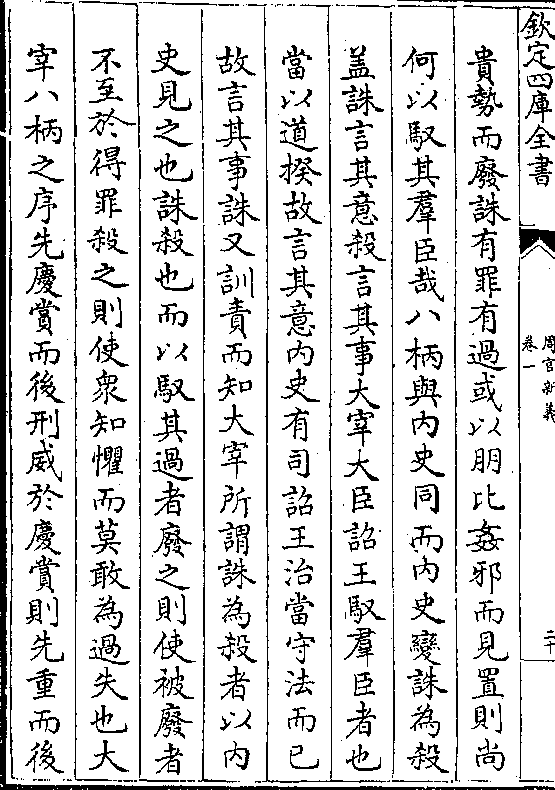 欽定四庫全書
周官新義
卷一
二十
貴勢而廢誅有罪有過或以朋比姦邪而見置則尚
何以馭其羣臣哉八柄與内史同而内史變誅為殺
盖誅言其意殺言其事大宰大臣詔王馭羣臣者也
當以道揆故言其意内史有司詔王治當守法而已
故言其事誅又訓責而知大宰所謂誅為殺者以内
史見之也誅殺也而以馭其過者廢之則使被廢者
不至於得罪殺之則使衆知懼而莫敢為過失也大
宰八柄之序先慶賞而後刑威於慶賞則先重而後